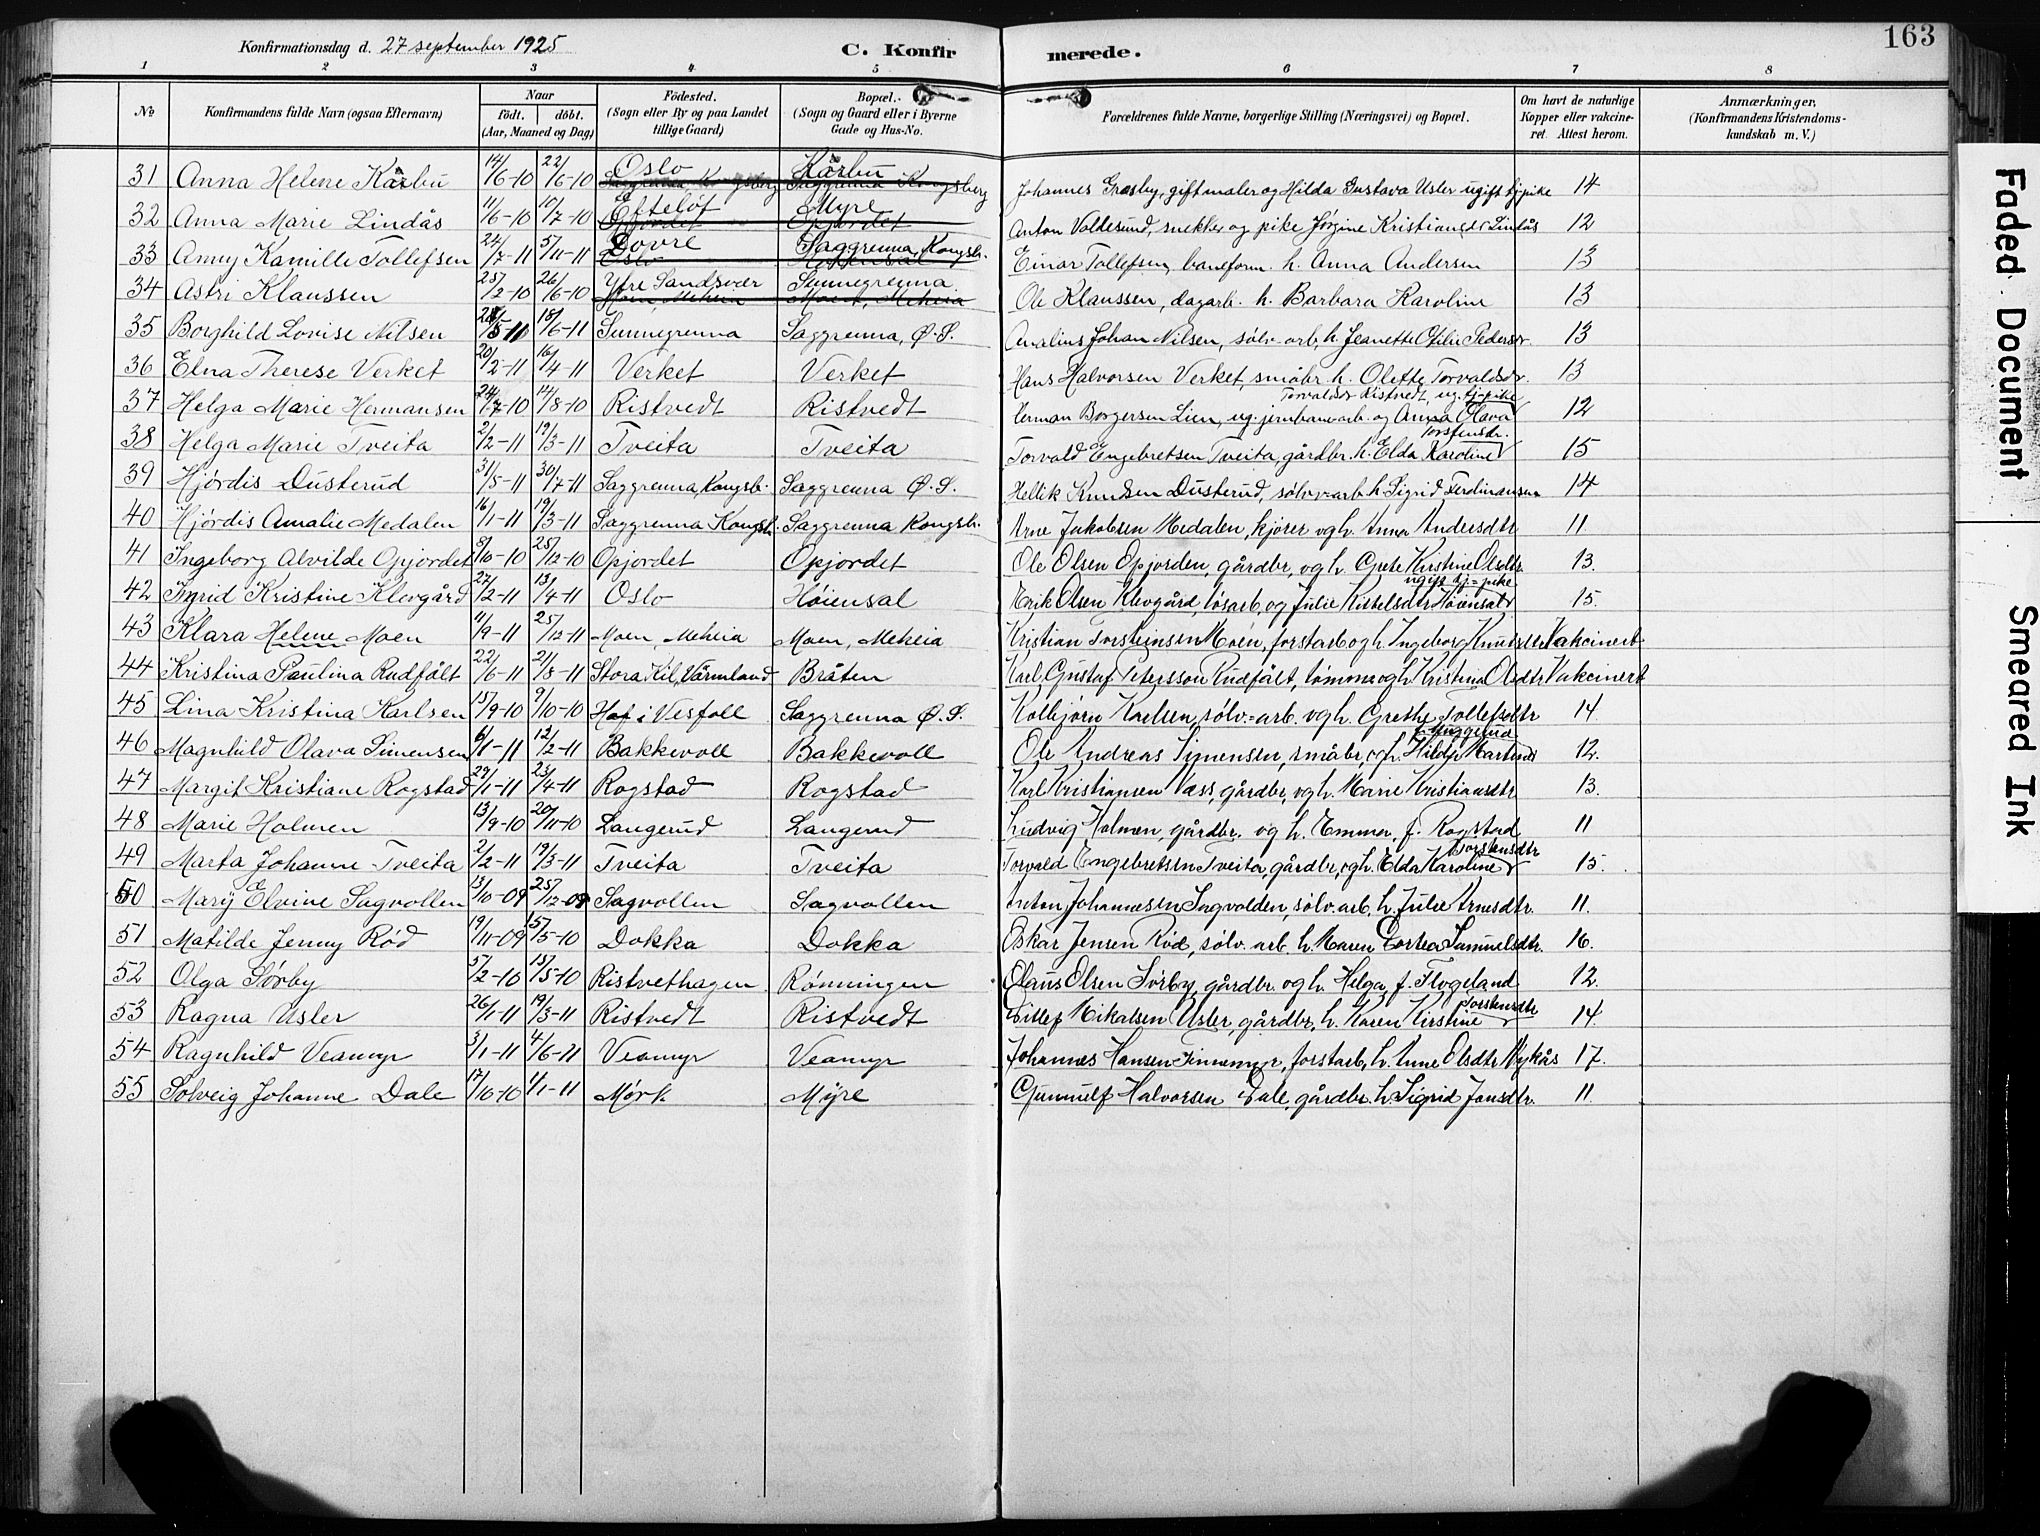 Konfirmationsdag d. 27 september 1925 C. Konfirmerede. 163
1 2 3 4 5 6 7 8
No Konfirmandens fulde Navn (ogsaa Efternavn) Naar født. døbt. (Aar, Maaned og Dag) Fødested. (Sogn eller By og paa Landet tillige Gaard) Bopæl. (Sogn og Gaard eller i Byerne Gade og Hus-No. Forældrenes fulde Navne, borgerlige Stilling (Næringsvei) og Bopæl. Om havt de naturlige Kopper eller vakcineret. Attest herom. Anmærkninger, (Konfirmandens Kristendomskundskab m. V.)
31 Anna Helene Kårbu 14/6-10 22/6-10 Oslo Kårbu Johannes Grasby, gift maler og Hilda Gustava Usler ugift tj-pike 14
32 Anna Marie Lindås 11/6-10 10/7-10 Efteløt Myre Anton Voldesund, snekker og pike Jørgine Kristiansdr Lindås 12
33 Anny Kamille Tollefsen 24/7-11 5/11-11 Dovre Saggrenna, Kongsb. Einar Tollefsen, baneform. h. Anna Andersen 13
34 Astri Klaussen 25/2-10 26/6-10 Ytre Sandsvær Sunnegrenna Ole Klaussen, dagarb. h. Barbara Karoline 13
35 Borghild Lovise Nilsen 18/6-11 Sunnegrenna Saggrenna, Ø.S. Analius Johan Nilsen, sølv-arb, h. Jeanette Otilie Pedersdr. 13
36 Elna Therese Verket 20/2-11 16/4-11 Verket Verket Hans Halvorsen Verket, småbr. h. Olette Torvaldsdr. 13
37 Helga Marie Hermansen 24/7-10 14/8-10 Ristvedt Ristvedt Herman Borgersen Lien, ug. jernbanearb. og Anna Olava Torvaldsdr Ristvedt, ug. tj-pike 12
38 Helga Marie Tveita 2/2-11 19/3-11 Tveita Tveita Torvald Engebretsen Tveita, gårdbr. h. Elda Karoline Torstensdr. 15
39 Hjørdis Dusterud 31/5-11 30/7-11 Saggrenna, Kongsb. Saggrenna Ø.S. Hellik Knudsen Dusterud, sølvv-arb. h. Sigrid Ferdinansen 14
40 Hjørdis Amalie Medalen 16/1-11 19/3-11 Saggrenna Kongsb. Saggrenna Kongsb. Arne Jakobsen Medalen, kjører og h. Anna Andersdtr 11
41 Ingeborg Alvilde Opjordet 8/10-10 25/12-10 Opjordet Opjordet Ole Olsen Opjorden, gårdbr, og h. Grete Kirstine Olsdtr. 13.
42 Ingrid Kristine Klevgård 27/2-11 13/4-11 Oslo Høiensal Erik Olsen Klevgård, løsarb, og Julie Kittelsdtr Høiensal ugift tj-pike 15.
43 Klara Helene Moen 11/9-11 25/12-11 Moen, Meheia Moen, Meheia Kristian Torsteinsen Moen, forstarb og h. Ingeborg Knudsdtr Vakcinert
44 Kristina Paulina Rudfålt 22/6-11 21/8-11 Stora Kil, Värmland Bråten Karl Gustaf Petersson Rudfålt, tømmer og h. Kristina Olsdtr Vakcinert
45 Lina Kristina Karlsen 15/9-10 9/10-10 Hof i Vesfoll Saggrenna Ø.S. Kolbjørn Karlsen, sølv-arb. og h. Grethe Tollefsdtr 14
46 Magnhild Olava Simensen 6/1-11 12/2-11 Bakkevoll Bakkevoll Ole Andreas Simensen, småbr, og h. Hilda 12.
47 Margit Kristiane Rogstad 29/1-11 23/4-11 Rogstad Rogstad Karl Kristiansen Vass, gårdbr, og h. Marie Kristiansdtr 13.
48 Marie Holmen 13/9-10 20/11-10 Langerud Langerud Ludvig Holmen, gårdbr. og h. Emma, f. Rogstad 11
49 Marta Johanne Tveita 2/2-11 19/3-11 Tveita Tveita Torvald Engebretsen Tveita, gårdbr, og h. Elda Karoline Torstensdtr 15.
50 Mary Elvine Sagvollen 13/10-09 25/12-09 Sagvollen Sagvollen Anton Johannesen Sagvolden, sølv.arb, h. Julie Arnesdtr. 11.
51 Matilde Jenny Rød 19/11-09 15/5-10 Dokka Dokka Oskar Jensen Rød, sølv. arb. h. Maren Dortea Samuelsdtr. 16.
52 Olga Sørby 5/2-10 15/5-10 Ristvethagen Rønningen Olaus Olsen Sørby, gårdbr. og h. Helga, f. Flogeland 12.
53 Ragna Usler 26/1-11 19/3-11 Ristvedt Ristvedt Ditlef Mikalsen Usler, gårdbr, h. Karen Kirstine Torstensdtr 14.
54 Ragnhild Veamyr 3/1-11 4/6-11 Veamyr Veamyr Johannes Hansen Finnemyr, forstarb, h. Anne Olsdtr Nykås 17.
55 Solveig Johanne Dale 17/10-10 1/1-11 Mørk Myre Gunnulf Halvorsen Dale, gårdbr. h. Sigrid Jonsdtr. 11.
Faded Document
Smeared Ink